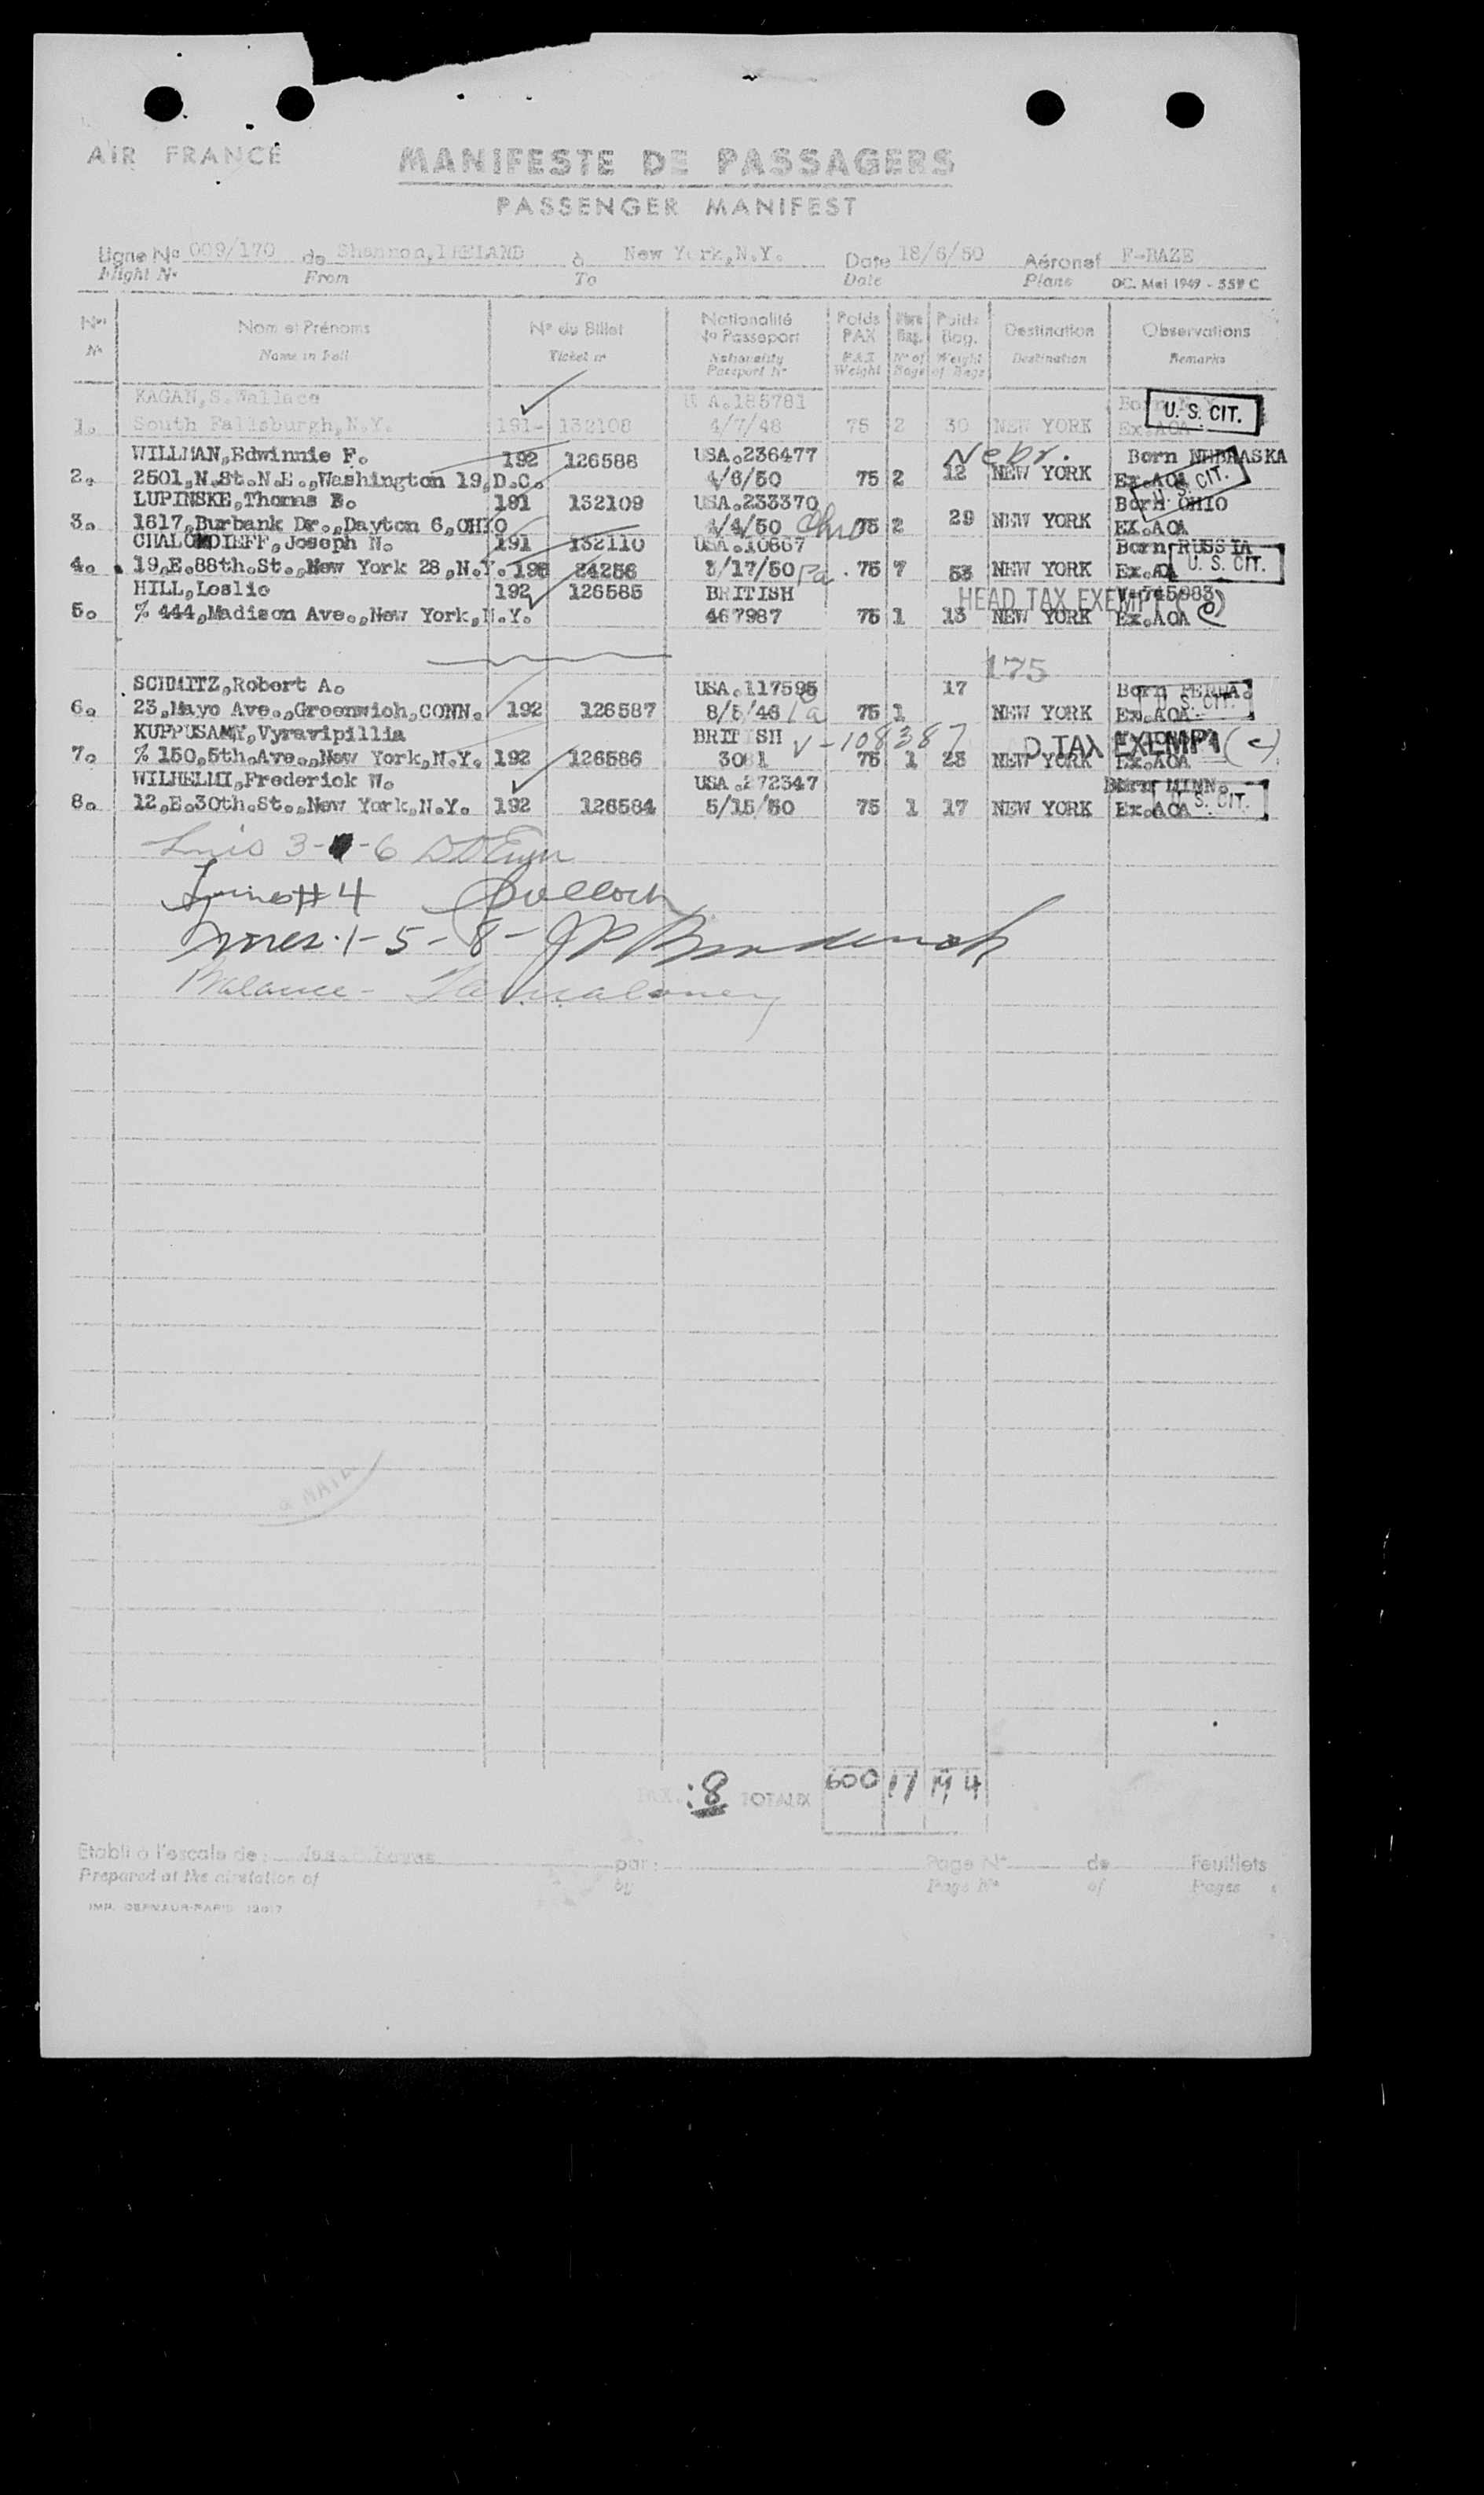 AIR FRANCE
MANIFESTE DE PASSAGERS
PASSENGER MANIFEST
Ligne No 009/170 de Shannon,IRELAND à New York,N.Y. Date 18/6/50 Aéronef F-BAZE
Flight No From To Date Plane OC. Mai 1949 - 557 C
Nos Nom et Prénoms No du Billet Nationalité No Passeport Poids PAX Nbre Bag. Poids Bag. Destination Observations
No Name in Full Ticket no Nationality Passport No PAX Weight No of Bags Weight of Bags Destination Remarks
KAGAN,S.Wallace U A.185781 Born N.Y.
1. South Fallsburgh,N.Y. 191- 132108 4/7/48 75 2 30 NEW YORK Ex.AOA U. S. CIT.
WILLMAN,Edwinnie F. 192 126588 USA.236477 Nebr. Born NEBRASKA
2. 2501,N.St.N.E.,Washington 19,D.C. 4/6/50 75 2 12 NEW YORK Ex.AOA U. S. CIT.
LUPINSKE,Thomas B. 191 132109 USA.233370 Born OHIO
3. 1617,Burbank Dr.,Dayton 6,OHIO 4/4/50 Ohio 75 2 29 NEW YORK EX.AOA
Joseph N. 191 132110 USA.10667 Born RUSSIA
4. 19,E.88th.St.,New York 28,N.Y. 198 24256 3/17/50 Pa . 75 7 53 NEW YORK Ex.AOA U. S. CIT.
HILL,Leslie 192 126585 BRITISH HEAD TAX EXEMPT (c) V-745983
5. % 444,Madison Ave.,New York,N.Y. 467987 75 1 13 NEW YORK Ex.AOA
175
SCHMITZ,Robert A. USA.117595 17 Born PENNA.
6. 23,Mayo Ave.,Greenwich,CONN. 192 126587 8/5/46 Pa 75 1 NEW YORK Ex.AOA U. S. CIT.
KUPPUSAMY,Vyravipillia BRITISH V-108387
7. % 150,5th.Ave.,New York,N.Y. 192 126586 3081 75 1 23 NEW YORK D TAX EXEMPT (c) Ex.AOA
WILHELMI,Frederick W. USA.272347 Born MINN.
8. 12,E.30th.St.,New York,N.Y. 192 126584 5/15/50 75 1 17 NEW YORK Ex.AOA U. S. CIT.
3- -6
#4
1-5-8-
Balance -
:8 TOTAUX 600 17 194
Etabli à l'escale de : par : Page No de Feuillets
Prepared at the airstation of by Page No of Pages